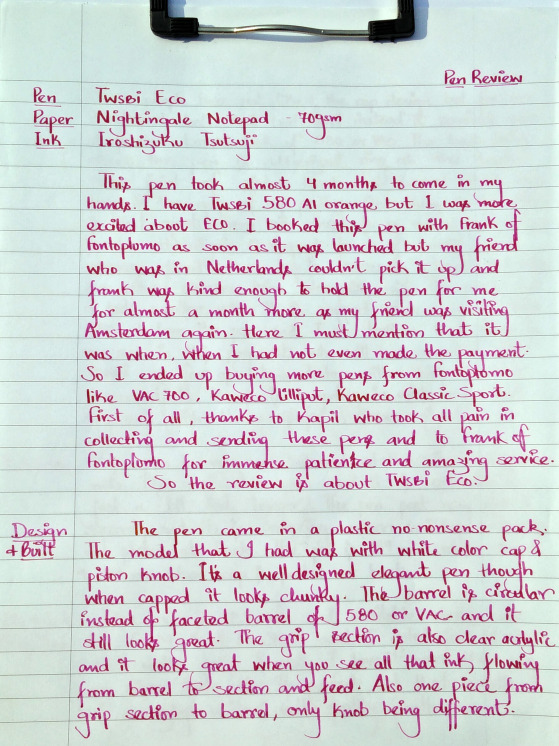 Pen Review
Pen Twsbi Eco
Paper Nightingale Notepad - 70gsm
Ink Iroshizuku Tsutsuji
This pen took almost 4 months to come in my
hands. I have Twsbi 580 Al orange, but I was more
excited about ECO. I booked this pen with Frank of
fontoplomo as soon as it was launched but my friend
who was in Netherlands couldn't pick it up and
frank was kind enough to hold the pen for me
for almost a month more, as my friend was visiting
Amsterdam again. Here I must mention that it
was when, when I had not even made the payment.
So I ended up buying more pens from fontoptomo
like VAC 700, Kaweco Lillipot, Kaweco Classic Sport.
First of all, thanks to Kapil who took all pain in
collecting and sending these pens and to frank of
fontoplomo for immense patientce and amazing service.
So the review is about Twsbi Eco.
Design The pen came in a plastic no-nonsense pack.
+ Built The model that I had was with white color cap &
piston knob. It's a well designed elegant pen though
when capped it looks chunky. The barrel is circular
instead of faceted barrel of 580 or VAC and it
still looks great. The grip section is also clear acrylic
and it looks great when you see all that ink, flowing
from barrel to section and feed. Also one piece from
grip section to barrel, only knob being different.